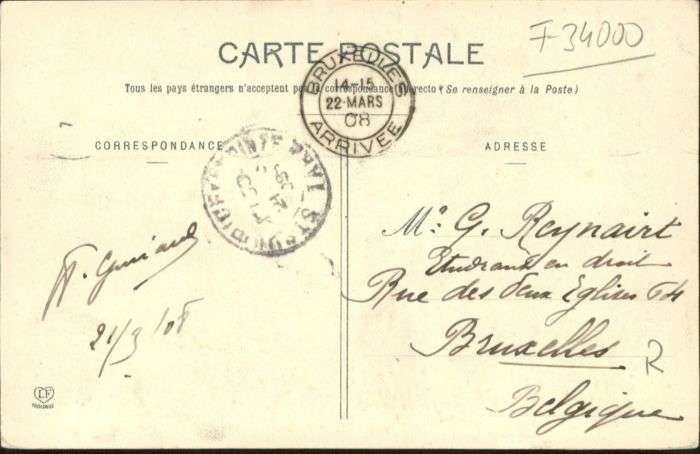 F 34000
CARTE POSTALE
Tous les pays étrangers n'acceptent pas la correspondance au recto (Se renseigner à la Poste)
BRUXELLES
14-15
22·MARS
08
ARRIVEE
CORRESPONDANCE
ADRESSE
Mr G. Reynairt
Etudiant en droit
Rue des deux Eglises 64
Bruxelles
Belgique
R
21/3/08
LF